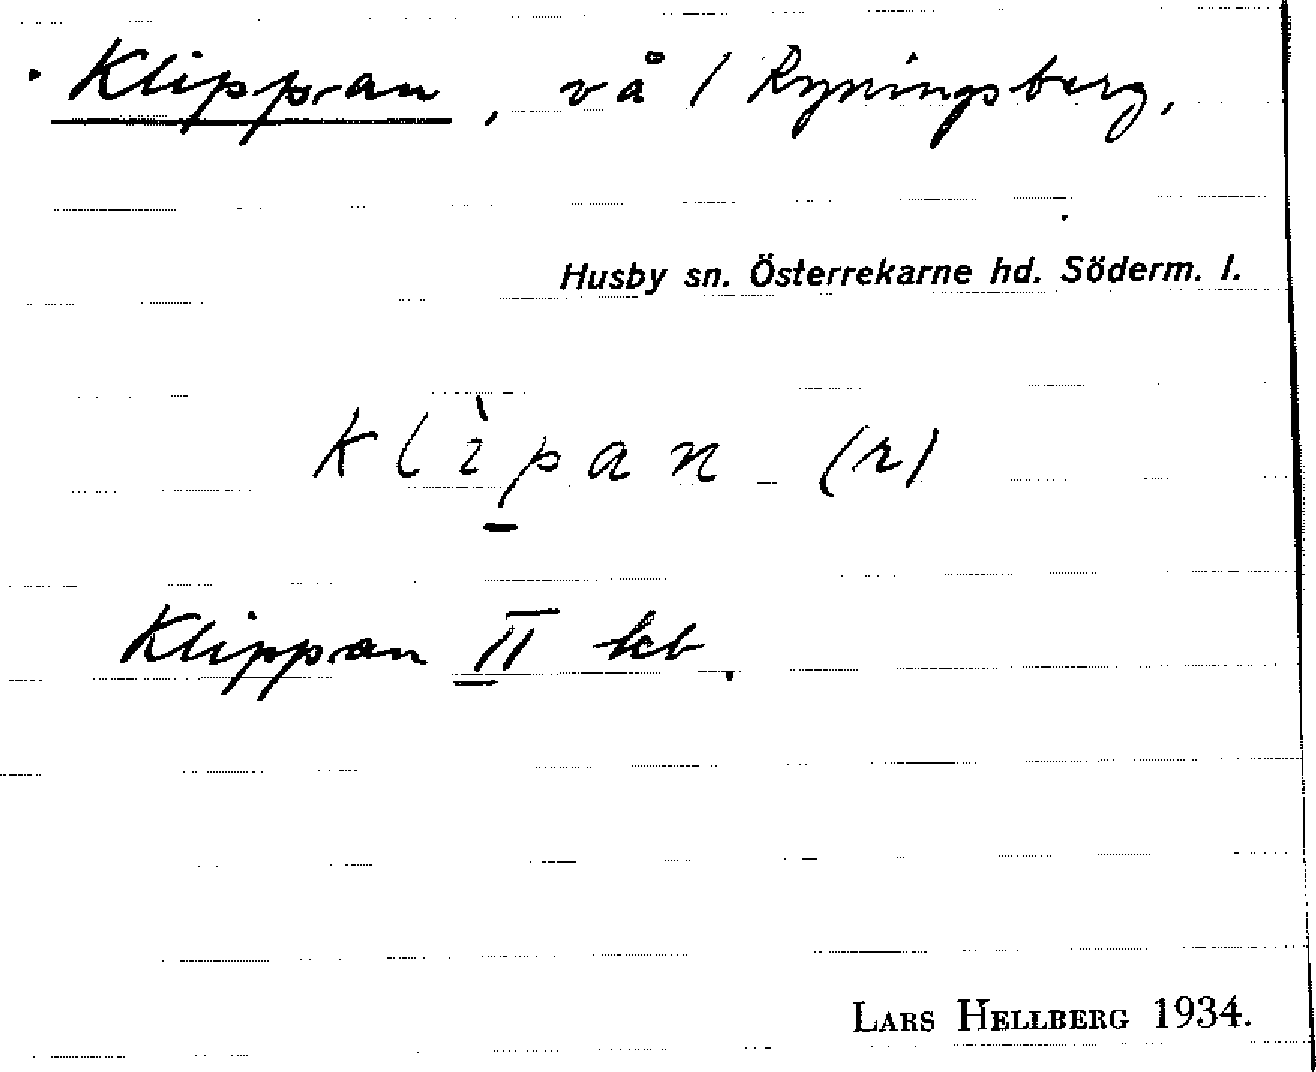 Klippan, vå / Ryningsberg,
Husby sn. Österrekarne hd. Söderm. l.
klìpan (r)
Klippan II kb.
LARS HELLBERG 1934.